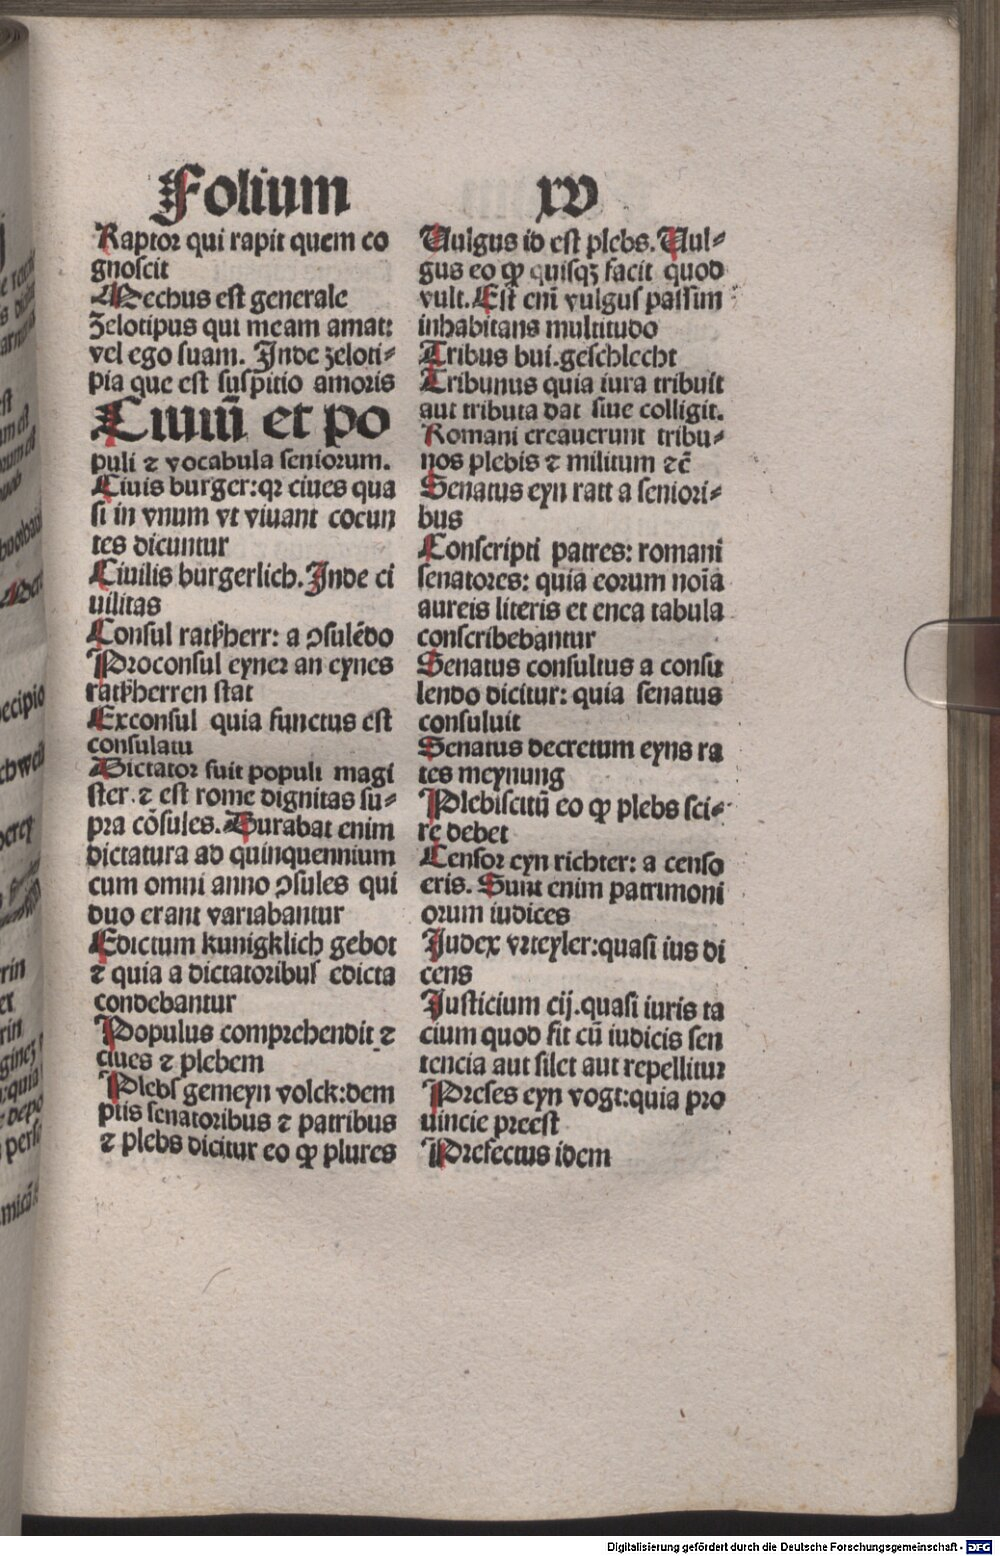 Folium xv
Raptor qui rapit quem co
gnoscit
Mechus est generale
Zelotipus qui meam amat:
vel ego suam. Inde zeloti⸗
pia que est suspitio amoris
Ciuiū et po
puli ⁊ vocabula seniorum.
Ciuis burger:qꝛ ciues qua
si in vnum vt viuant coeun
tes dicuntur
Ciuilis burgerlich. Inde ci
uilitas
Consul ratßherr: a ↄsulēdo
Proconsul eyner an eynes
ratßherren stat
Exconsul quia functus est
consulatu
Dictator fuit populi magi
ster. ⁊ est rome dignitas su⸗
pra cōsules. Durabat enim
dictatura ad quinquennium
cum omni anno ↄsules qui
duo erant variabantur
Edictum kunigklich gebot
⁊ quia a dictatoribus edicta
condebantur
Populus comprehendit ⁊
ciues ⁊ plebem
Plebs gemeyn volck:dem
ptis senatoribus ⁊ patribus
⁊ plebs dicitur eo ꝙ plures
Uulgus id est plebs. Uul⸗
gus eo ꝙ quisqꝫ facit quod
vult. Est eni vulgus passim
inhabitans multitudo
Tribus bui.geschlecht
Tribunus quia iura tribuit
aut tributa dat siue colligit.
Romani creauerunt tribu⸗
nos plebis ⁊ militum ⁊c̄
Senatus eyn ratt a seniori⸗
bus
Conscripti patres: romani
senatores: quia eorum noīa
aureis literis et enea tabula
conscribebantur
Senatus consultus a consu
lendo dicitur: quia senatus
consuluit
Senatus decretum eyns ra
tes meynung
Plebiscitū eo ꝙ plebs sci⸗
re debet
Censor eyn richter: a censo
eris. Sunt enim patrimoni
orum iudices
Judex vrteyler:quasi ius di
cens
Justicium cij.quasi iuris ta
cium quod fit cū iudicis sen
tencia aut silet aut repellitur
Preses eyn vogt:quia pro
uincie preest
Prefectus idem
Digitalisierung gefördert durch die Deutsche Forschungsgemeinschaft - DFG